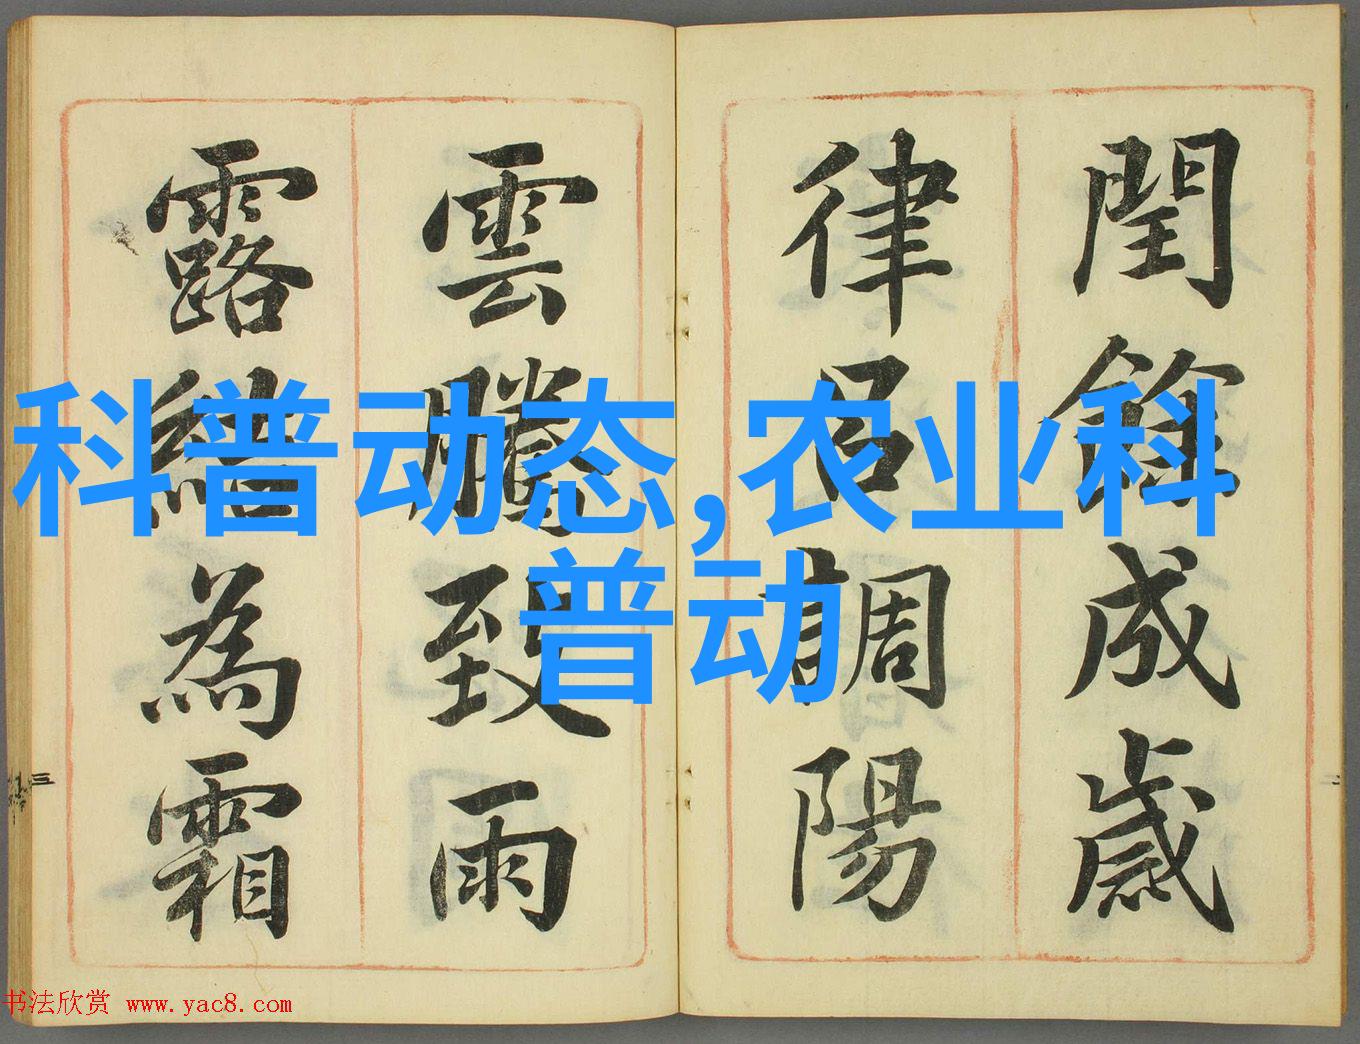 閏餘成歲
律呂調陽
雲騰致雨
露結為霜
科普动态,农业科
普动
三
二
书法欣赏 www.yac8.com